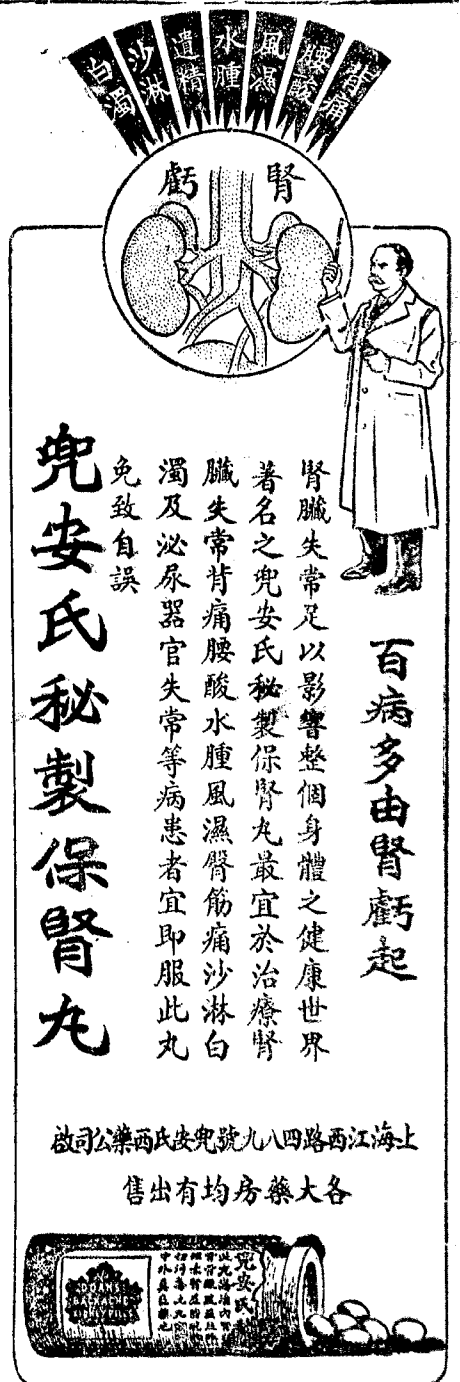 背痛
腰酸
風濕
水腫
遺精
沙淋
白濁
腎虧
百病多由腎虧起
腎臟失常足以影響整個身體之健康世界
著名之兜安氏秘製保腎丸最宜於治療腎
臟失常背痛腰酸水腫風濕臀筋痛沙淋白
濁及泌尿器官失常等病患者宜即服此丸
免致自誤
兜安氏秘製保腎丸
上海江西路四八九號兜安氏西藥公司啟
各大藥房均有出售
兜安氏